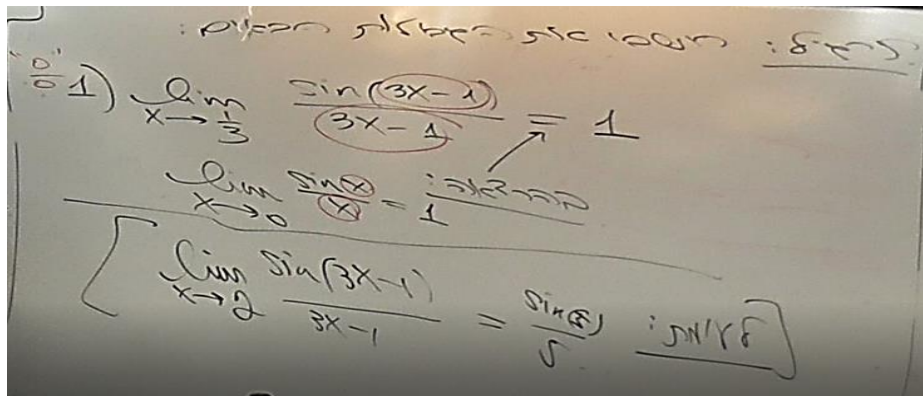 תרגיל: חשבו את הגבולות הבאים:
"0/0" 1) lim x→1/3 sin(3x-1)/(3x-1) = 1
lim x→0 sin x/x = 1
[lim x→2 sin(3x-1)/(3x-1) = sin(5)/5]